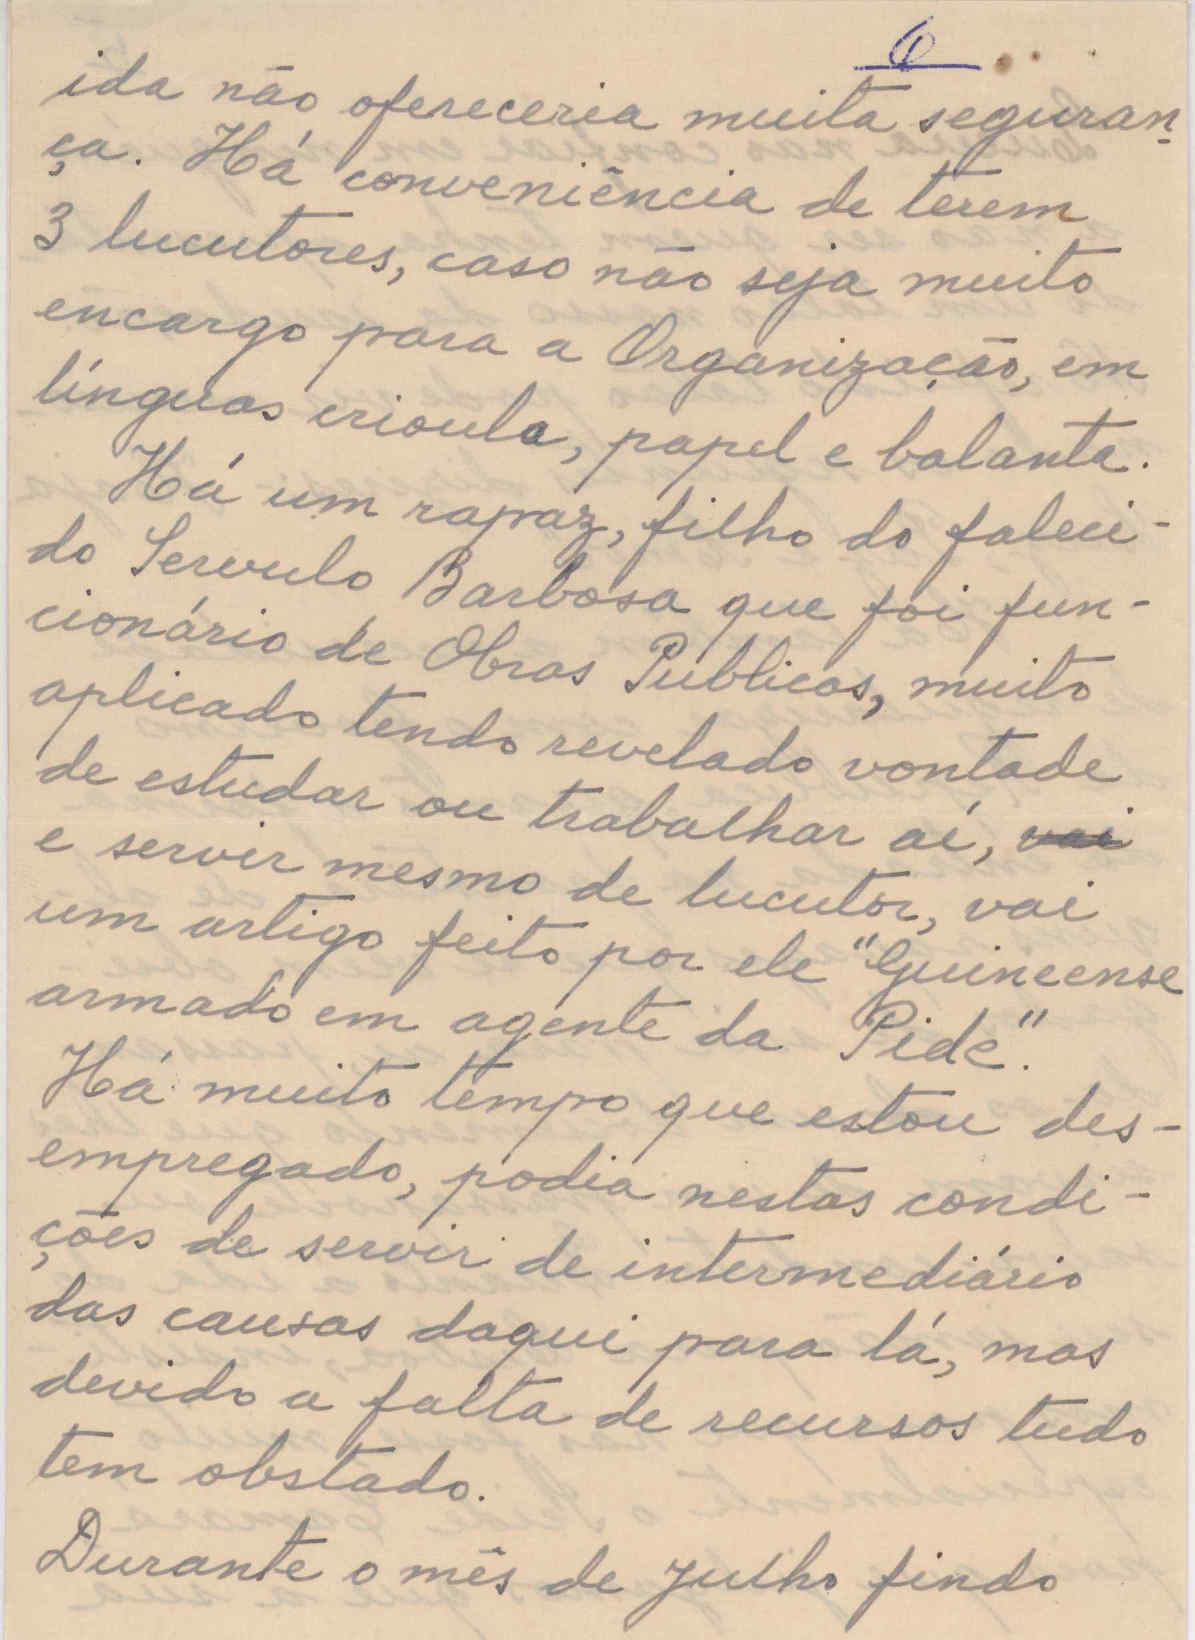 6
ida não ofereceria muita seguran-
ça. Há conveniência de terem
3 lucutores, caso não seja muito
encargo para a Organização, em
línguas crioula, papel e balanta.
Há um rapaz, filho do faleci-
do Servulo Barbosa que foi fun-
cionário de Obras Publicas, muito
aplicado tendo revelado vontade
de estudar ou trabalhar aí, vai
e servir mesmo de lucutor, vai
um artigo feito por ele "Guineense
armado em agente da Pide".
Há muito tempo que estou des-
empregado, podia nestas condi-
ções de servir de intermediário
das causas daqui para lá, mas
devido a falta de recursos tudo
tem obstado.
Durante o mês de Julho findo